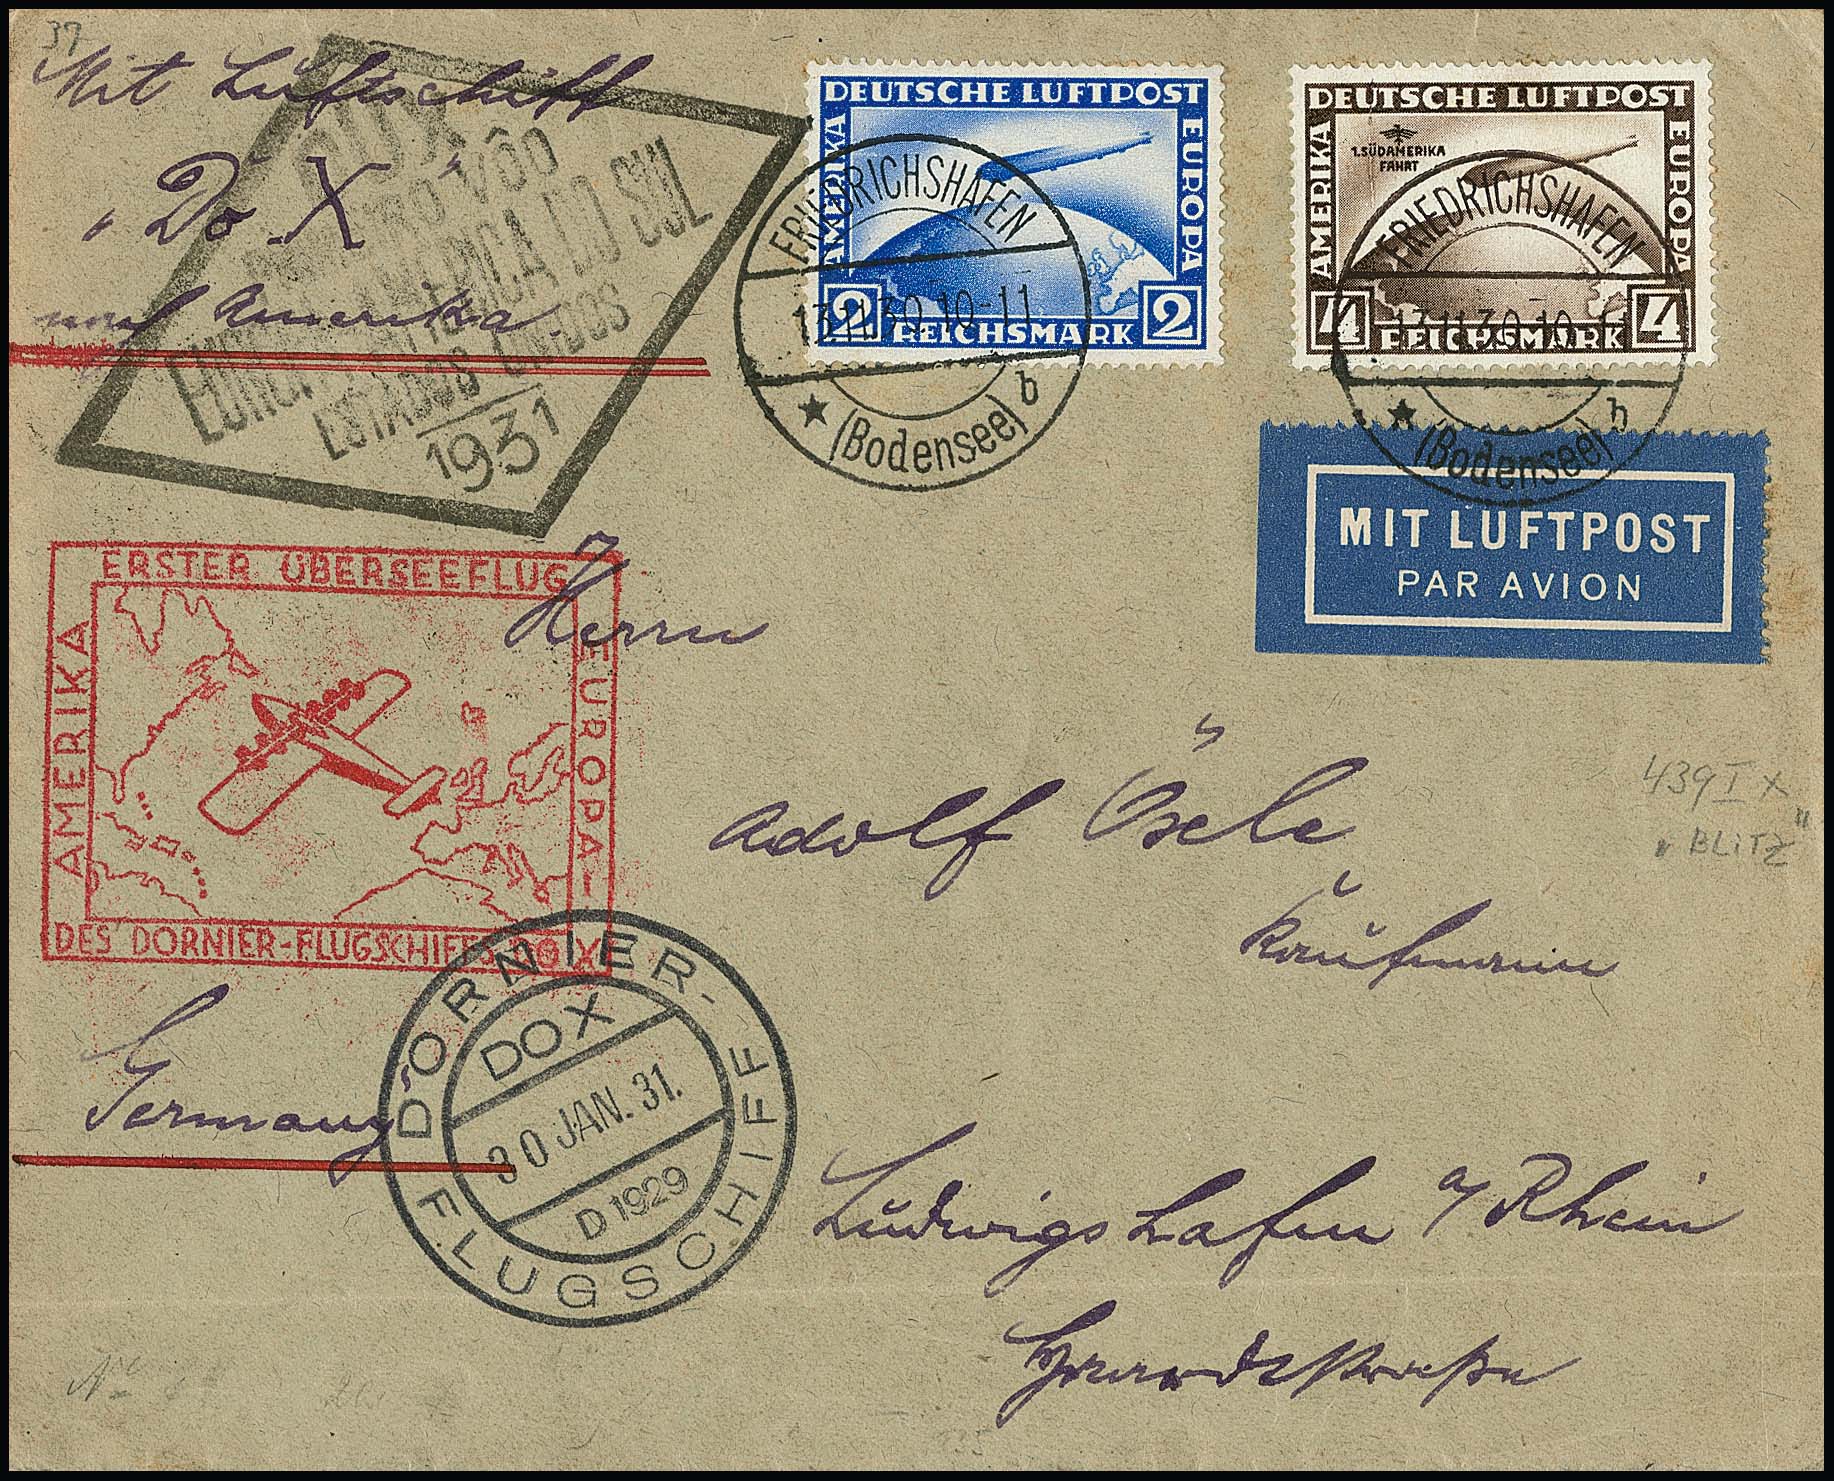 37
Mit Luftschiff
"Do X"
nach Amerika
DOX
VÔO
AMERICA DO SUL
ESTADOS UNIDOS
1931
DEUTSCHE LUFTPOST
AMERIKA
EUROPA
2 REICHSMARK 2
FRIEDRICHSHAFEN
13.11.30.10-11
★ (Bodensee) b
DEUTSCHE LUFTPOST
AMERIKA
EUROPA
1.SÜDAMERIKA
FAHRT
4 REICHSMARK 4
FRIEDRICHSHAFEN
13.11.30.10
★ (Bodensee) b
MIT LUFTPOST
PAR AVION
ERSTER ÜBERSEEFLUG
AMERIKA
EUROPA-
DES DORNIER-FLUGSCHIFFS DO X
Herrn
Adolf Ösele
Kaufmann
439 I x
"BLITZ"
Germany
DORNIER-
FLUGSCHIFF
DOX
30 JAN. 31.
D1929
Ludwigshafen a/Rhein